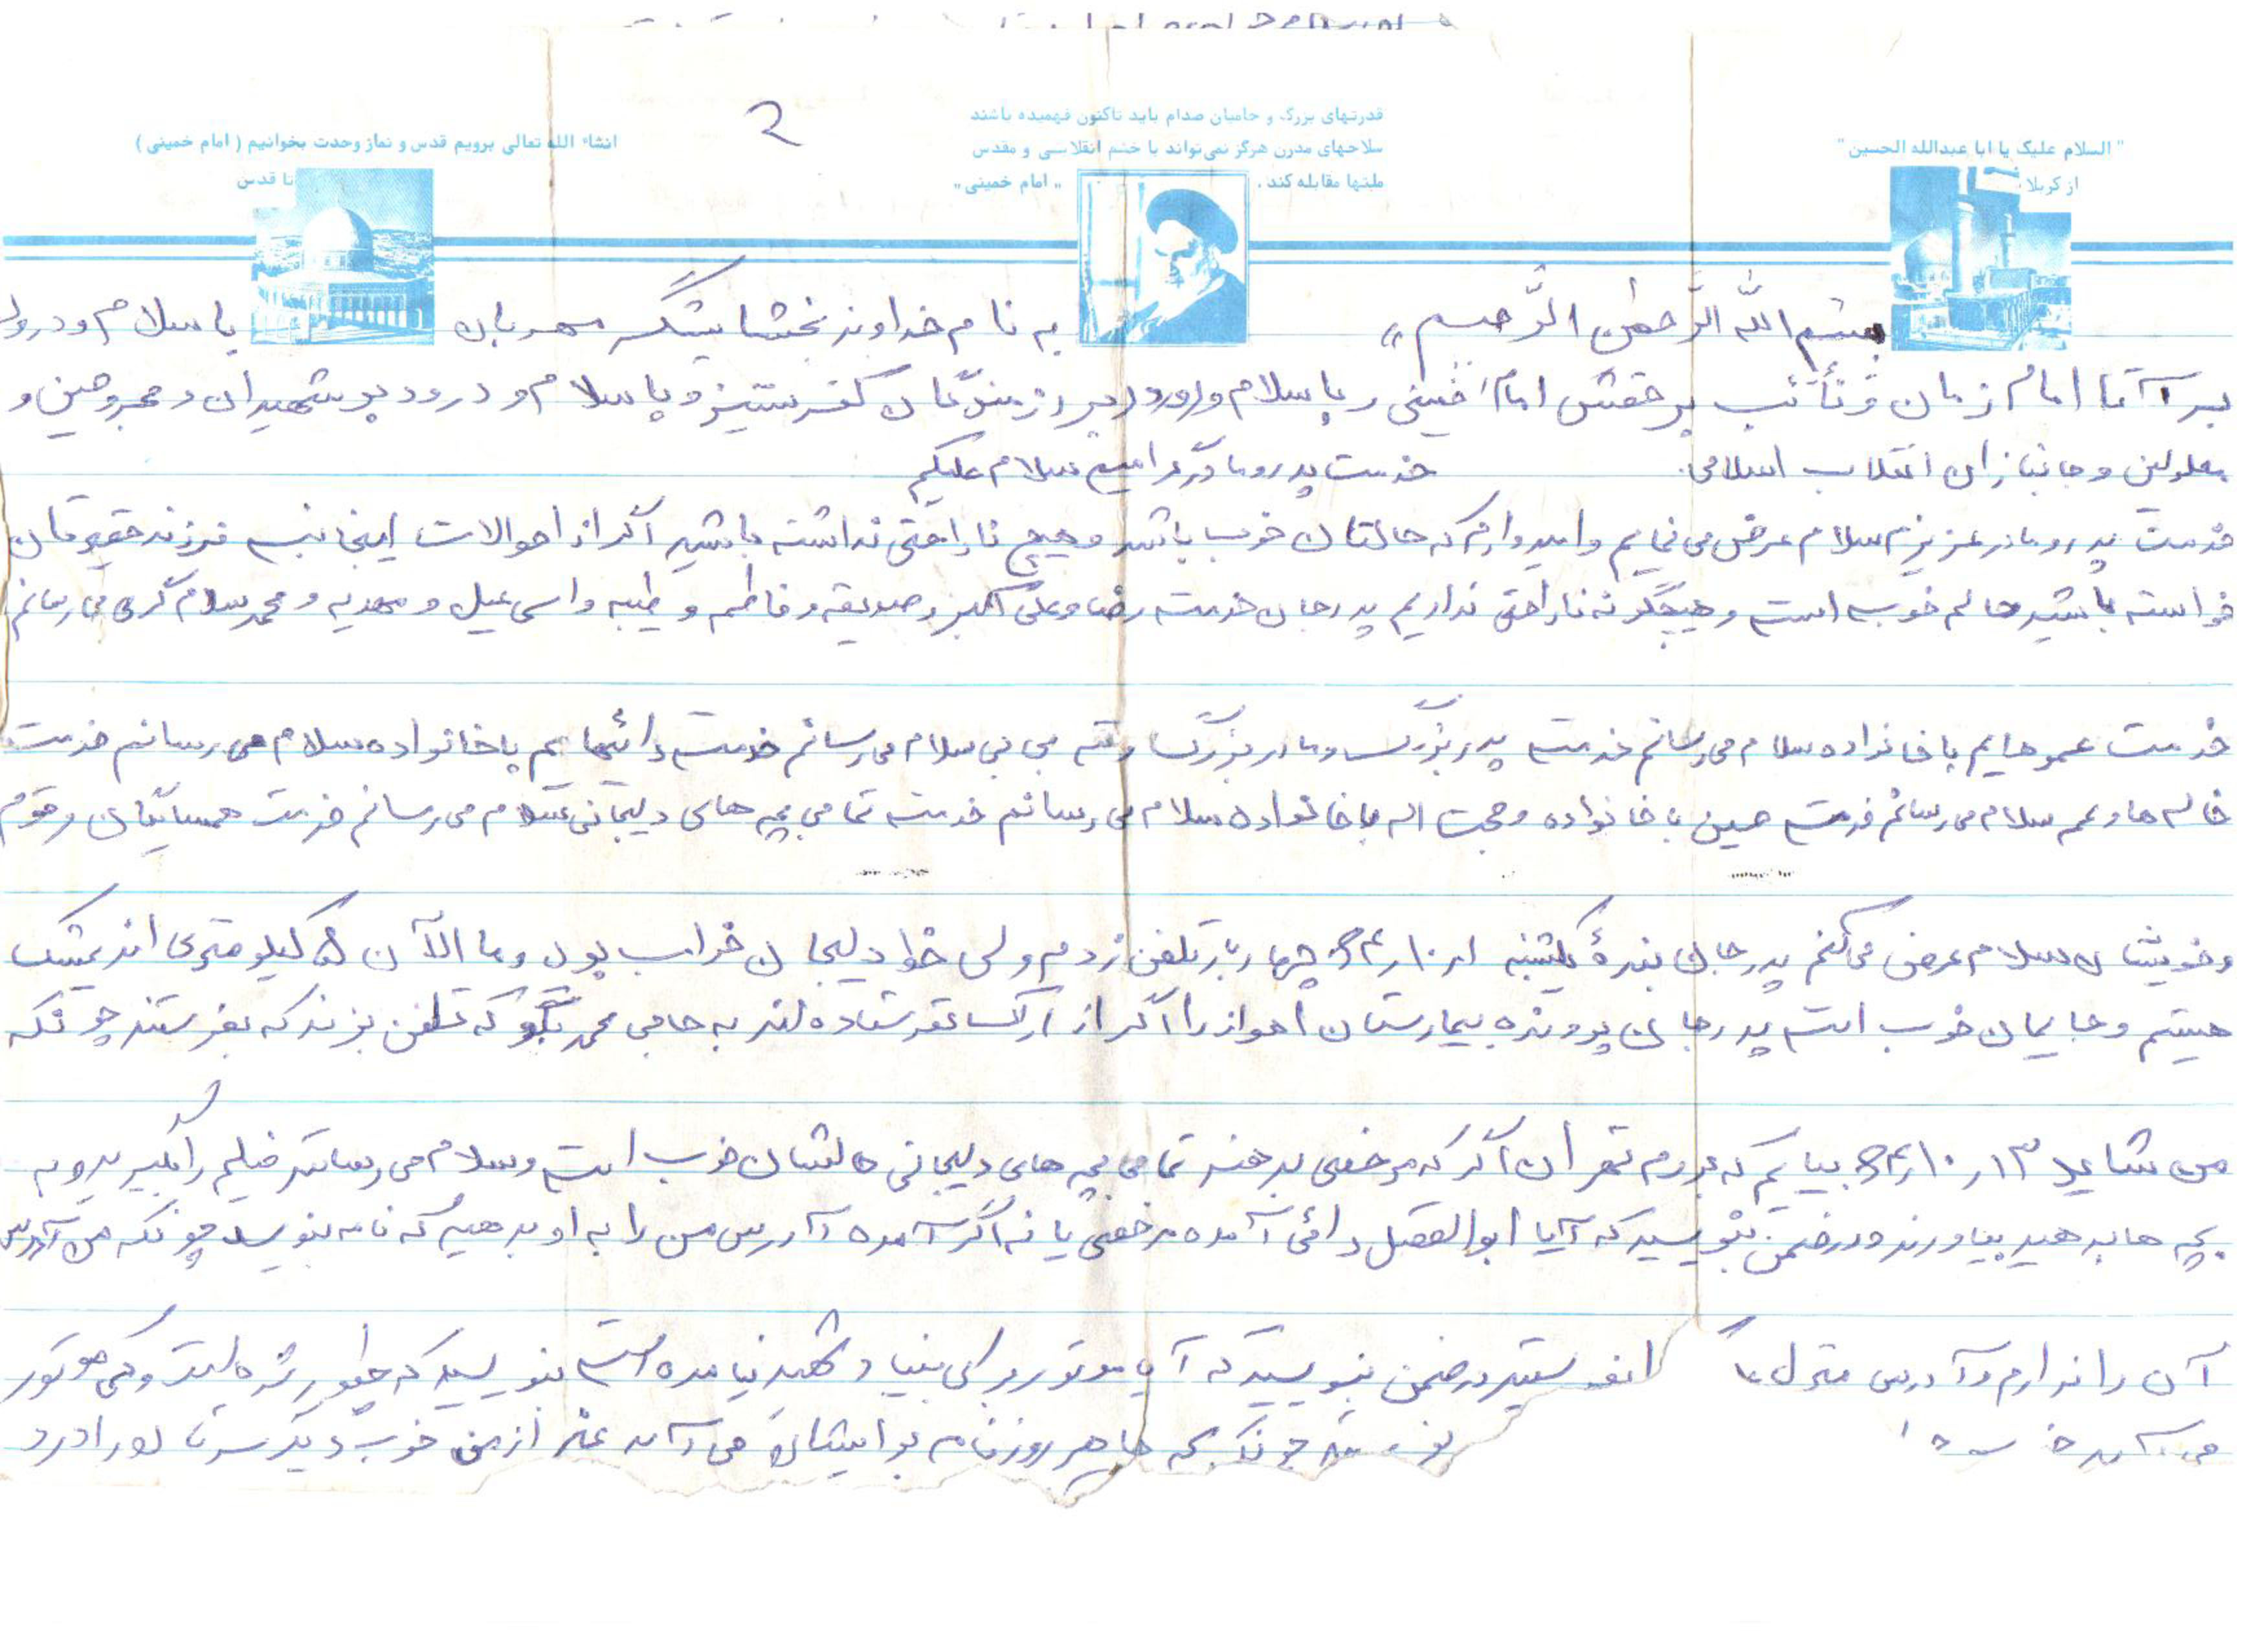 ۲
قدرتهای بزرگ و حامیان صدام باید تاکنون فهمیده باشند
سلاحهای مدرن هرگز نمی‌تواند با خشم انقلابی و مقدس
ملتها مقابله کند. "امام خمینی"
"السلام علیک یا ابا عبدالله الحسین"
از کربلا
انشاء الله تعالی برویم قدس و نماز وحدت بخوانیم (امام خمینی)
تا قدس
بسم الله الرَّحمن الرَّحیم» به نام خداوند بخشایشگر مهربان با سلام و درود
بر آقا امام زمان و نائب بر حقش امام خمینی و با سلام و درود بر رزمندگان کفر ستیز و با سلام و درود بر شهیدان و مجروحین و
معلولین و جانبازان انقلاب اسلامی. خدمت پدر و مادر گرامیم سلام علیکم
خدمت پدر و مادر عزیزم سلام عرض می نمایم و امیدوارم که حالتان خوب باشد و هیچ ناراحتی نداشته باشید اگر از احوالات اینجانب فرزند حقیرتان
خواسته باشید حالم خوب است و هیچگونه ناراحتی نداریم پدر جان خدمت رضا و علی اکبر و صدیقه و فاطمه و طیبه و اسماعیل و مهدیه و محمد سلام گرمی می رسانم
خدمت عموهایم با خانواده سلام می رسانم خدمت پدر بزرگ و مادر بزرگ و ننه بی بی سلام می رسانم خدمت دائیهایم با خانواده سلام می رسانم خدمت
خاله ها و عمه سلام می رسانم خدمت حسین با خانواده و حجت اله با خانواده سلام می رسانم خدمت تمامی بچه های دلیجانی سلام می رسانم خدمت همسایگان و قوم
و خویشان سلام عرض می کنم پدر جان بنده یکشنبه ۶۴/۱۰/۱ چهار بار تلفن زدم ولی خط دلیجان خراب بود و ما الآن ۵ کیلومتری اندیمشک
هستیم و جایمان خوب است پدر جان پرونده بیمارستان اهواز را اگر از اراک نفرستاده اند به حاجی محمد بگو که تلفن بزند که بفرستند چونکه
من شاید ۶۴/۱۰/۱۳ بیایم که بروم تهران اگر که مرخصی بدهند تمامی بچه های دلیجانی حالشان خوب است و سلام می رسانند فیلم را بگیرید و به
بچه ها بدهید بیاورند و در ضمن بنویسید که آیا ابوالفضل دائی آمده مرخصی یا نه اگر آمده آدرس من را به او بدهید که نامه بنویسد چونکه من آدرس
آن را ندارم و آدرس منزل در ضمن بنویسید که آیا موتور برای بنیاد شهید نیامده است بنویسید که چطور شده است و کی موتور
می چونکه بچه ها هر روز نامه برایشان می آید غیر از من خوب دیگر سرتان را درد